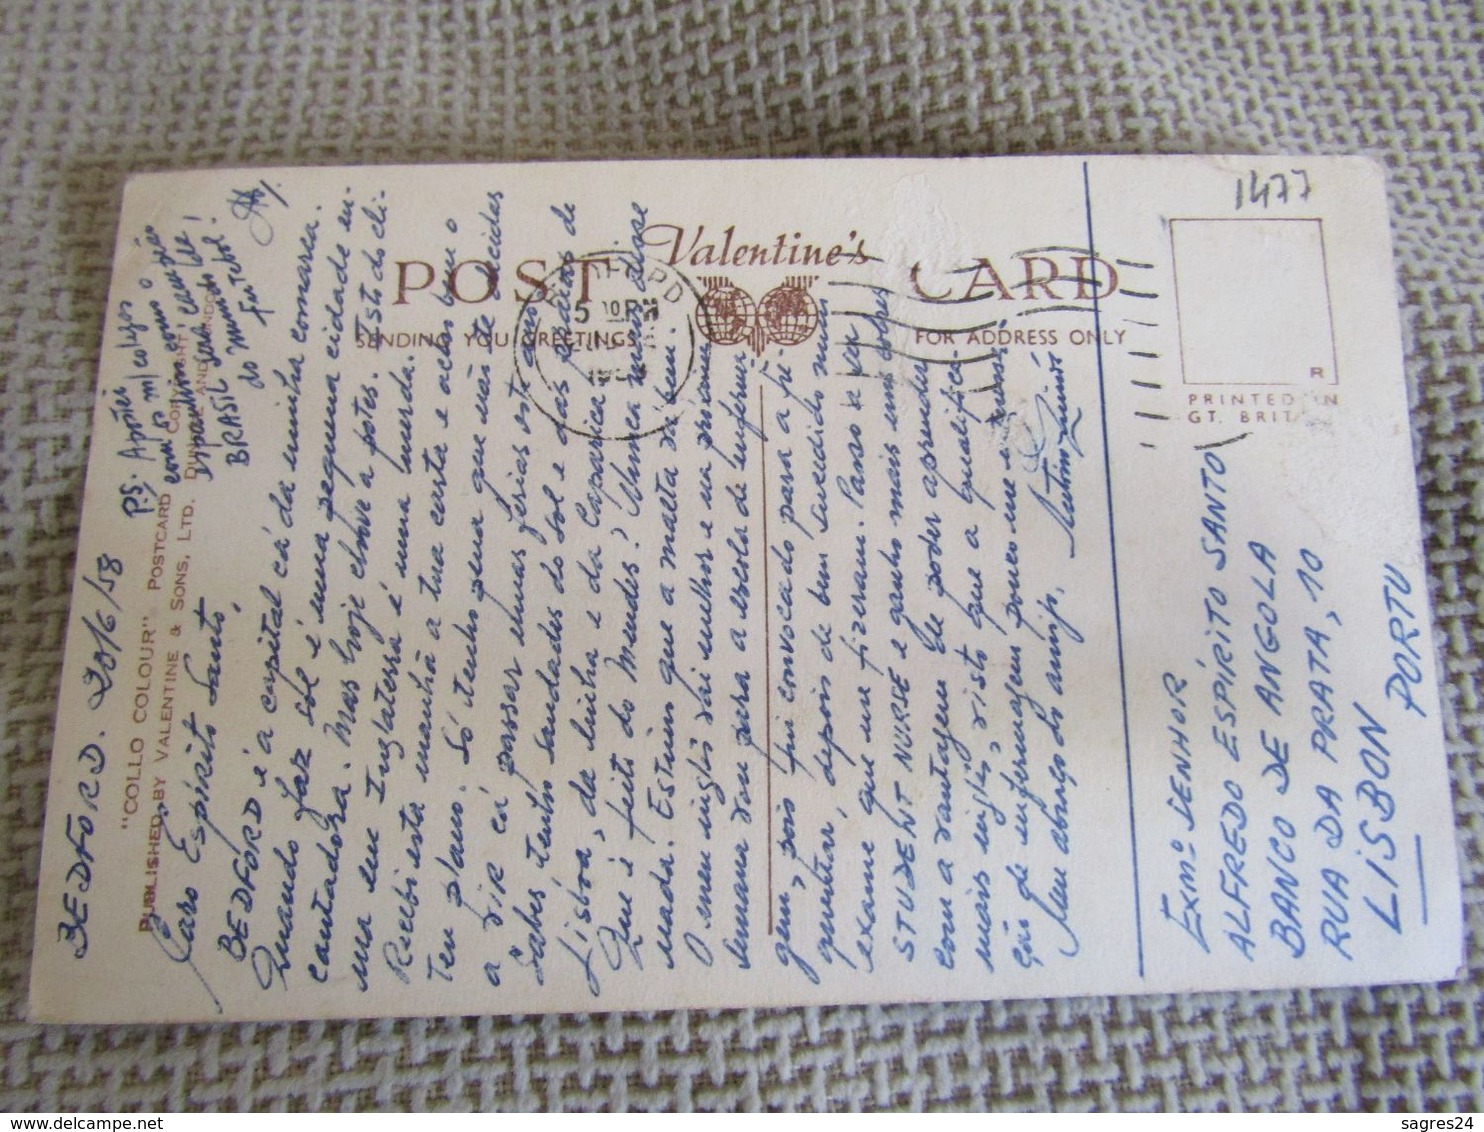 1477
Valentine's
POST CARD
SENDING YOU GREETINGS
FOR ADDRESS ONLY
BEDFORD
PRINTED IN
GT. BRIT
R
"COLLO COLOUR" POSTCARD
PUBLISHED BY VALENTINE & SONS, LTD. DUNDEE AND
BEDFORD. 20/6/58
Caro Espírito Santo,
BEDFORD é a capital cá da minha comarca.
Quando faz sol é uma pequena cidade en-
cantadora. Mas hoje chove a potes. Isto do cli-
ma em Inglaterra é uma merda.
Recebi esta manhã a tua carta e acho bem o
teu plano. Só tenho pena que não te decidas
a vir cá passar umas férias este ano.
Sabes tenho saudades do sol e das praias de
Lisboa, da linha e da Caparica.
Que é feito do Mendes? Nunca mais disse
nada. Estimo que a malta vá bem.
O meu inglês vai melhor e na próxima
semana vou para a escola de enfermа-
gem, pois fui convocado para a fre-
quentar, depois de bem sucedido num
exame que me fizeram. Passo a ser
STUDENT NURSE e ganho mais uns cobres
com a vantagem de poder aprender
mais inglês, visto que a qualifica-
ção de enfermagem pouco me
Um abraço do amigo,
P.S. Apostei
com 50 m/ colegas
em como o
BRASIL será campeão
do mundo de
Futebol!
EXMº SENHOR
ALFREDO ESPÍRITO SANTO
BANCO DE ANGOLA
RUA DA PRATA, 10
LISBON
PORTU
sagres24